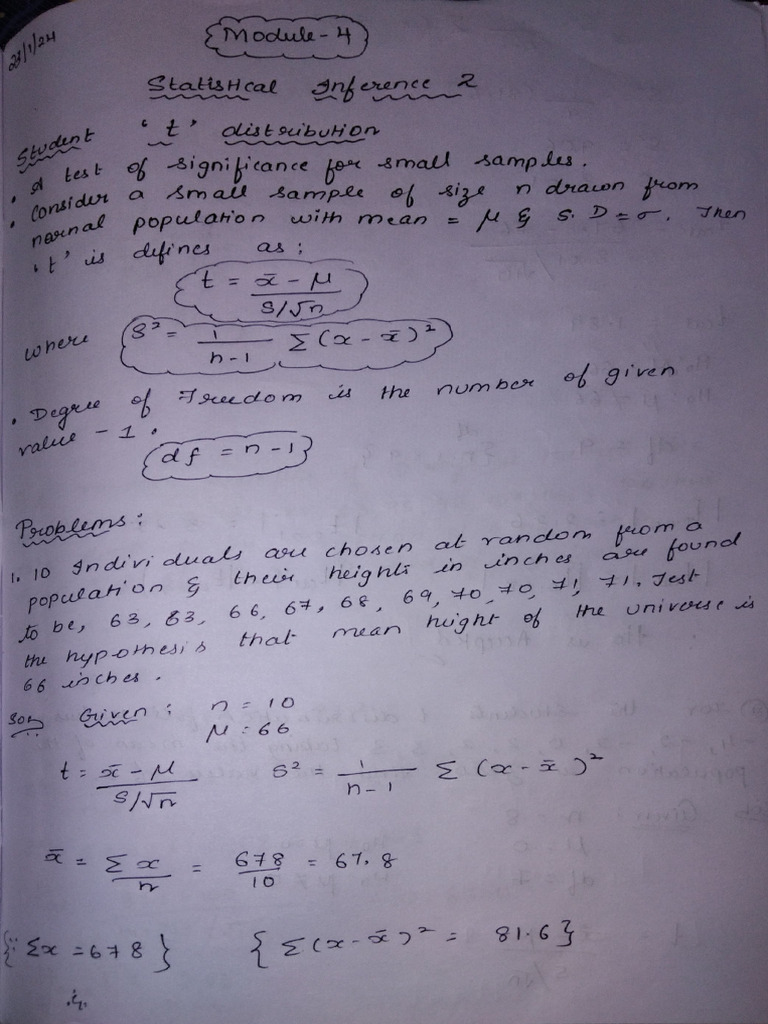 23/1/24
Module - 4
Statistical Inference 2
Student 't' distribution
• A test of significance for small samples.
• Consider a small sample of size n drawn from
normal population with mean = μ & S.D = σ. Then
't' is defines as;
t = x̄ - μ / S/√n
where S² = 1/n-1 Σ(x - x̄)²
• Degree of Freedom is the number of given
value - 1.
df = n - 1
Problems:
1. 10 Individuals are chosen at random from a
population & their heights in inches are found
to be, 63, 63, 66, 67, 68, 69, 70, 70, 71, 71. Test
the hypothesis that mean height of the universe is
66 inches.
Soln Given: n = 10
μ = 66
t = x̄ - μ / S/√n S² = 1/n-1 Σ(x - x̄)²
x̄ = Σx/n = 678/10 = 67.8
{∵ Σx = 678} {Σ(x - x̄)² = 81.6}